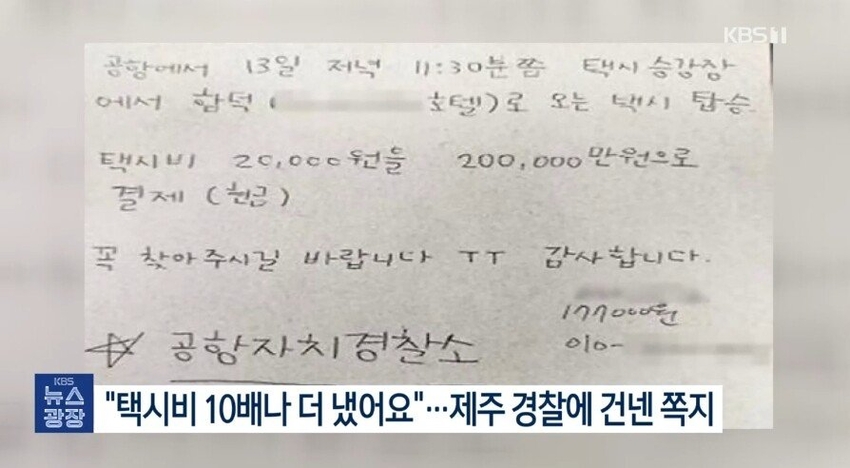 KBS 1
공항에서 13일 저녁 11:30분쯤 택시 승강장
에서 함덕 ( 호텔)로 오는 택시 탑승.
택시비 20,000원을 200,000만원으로
결제 (현금)
꼭 찾아주시길 바랍니다 ㅜㅜ 감사합니다.
177000원
010-
☆ 공항자치경찰소
KBS
뉴스
광장
"택시비 10배나 더 냈어요"…제주 경찰에 건넨 쪽지